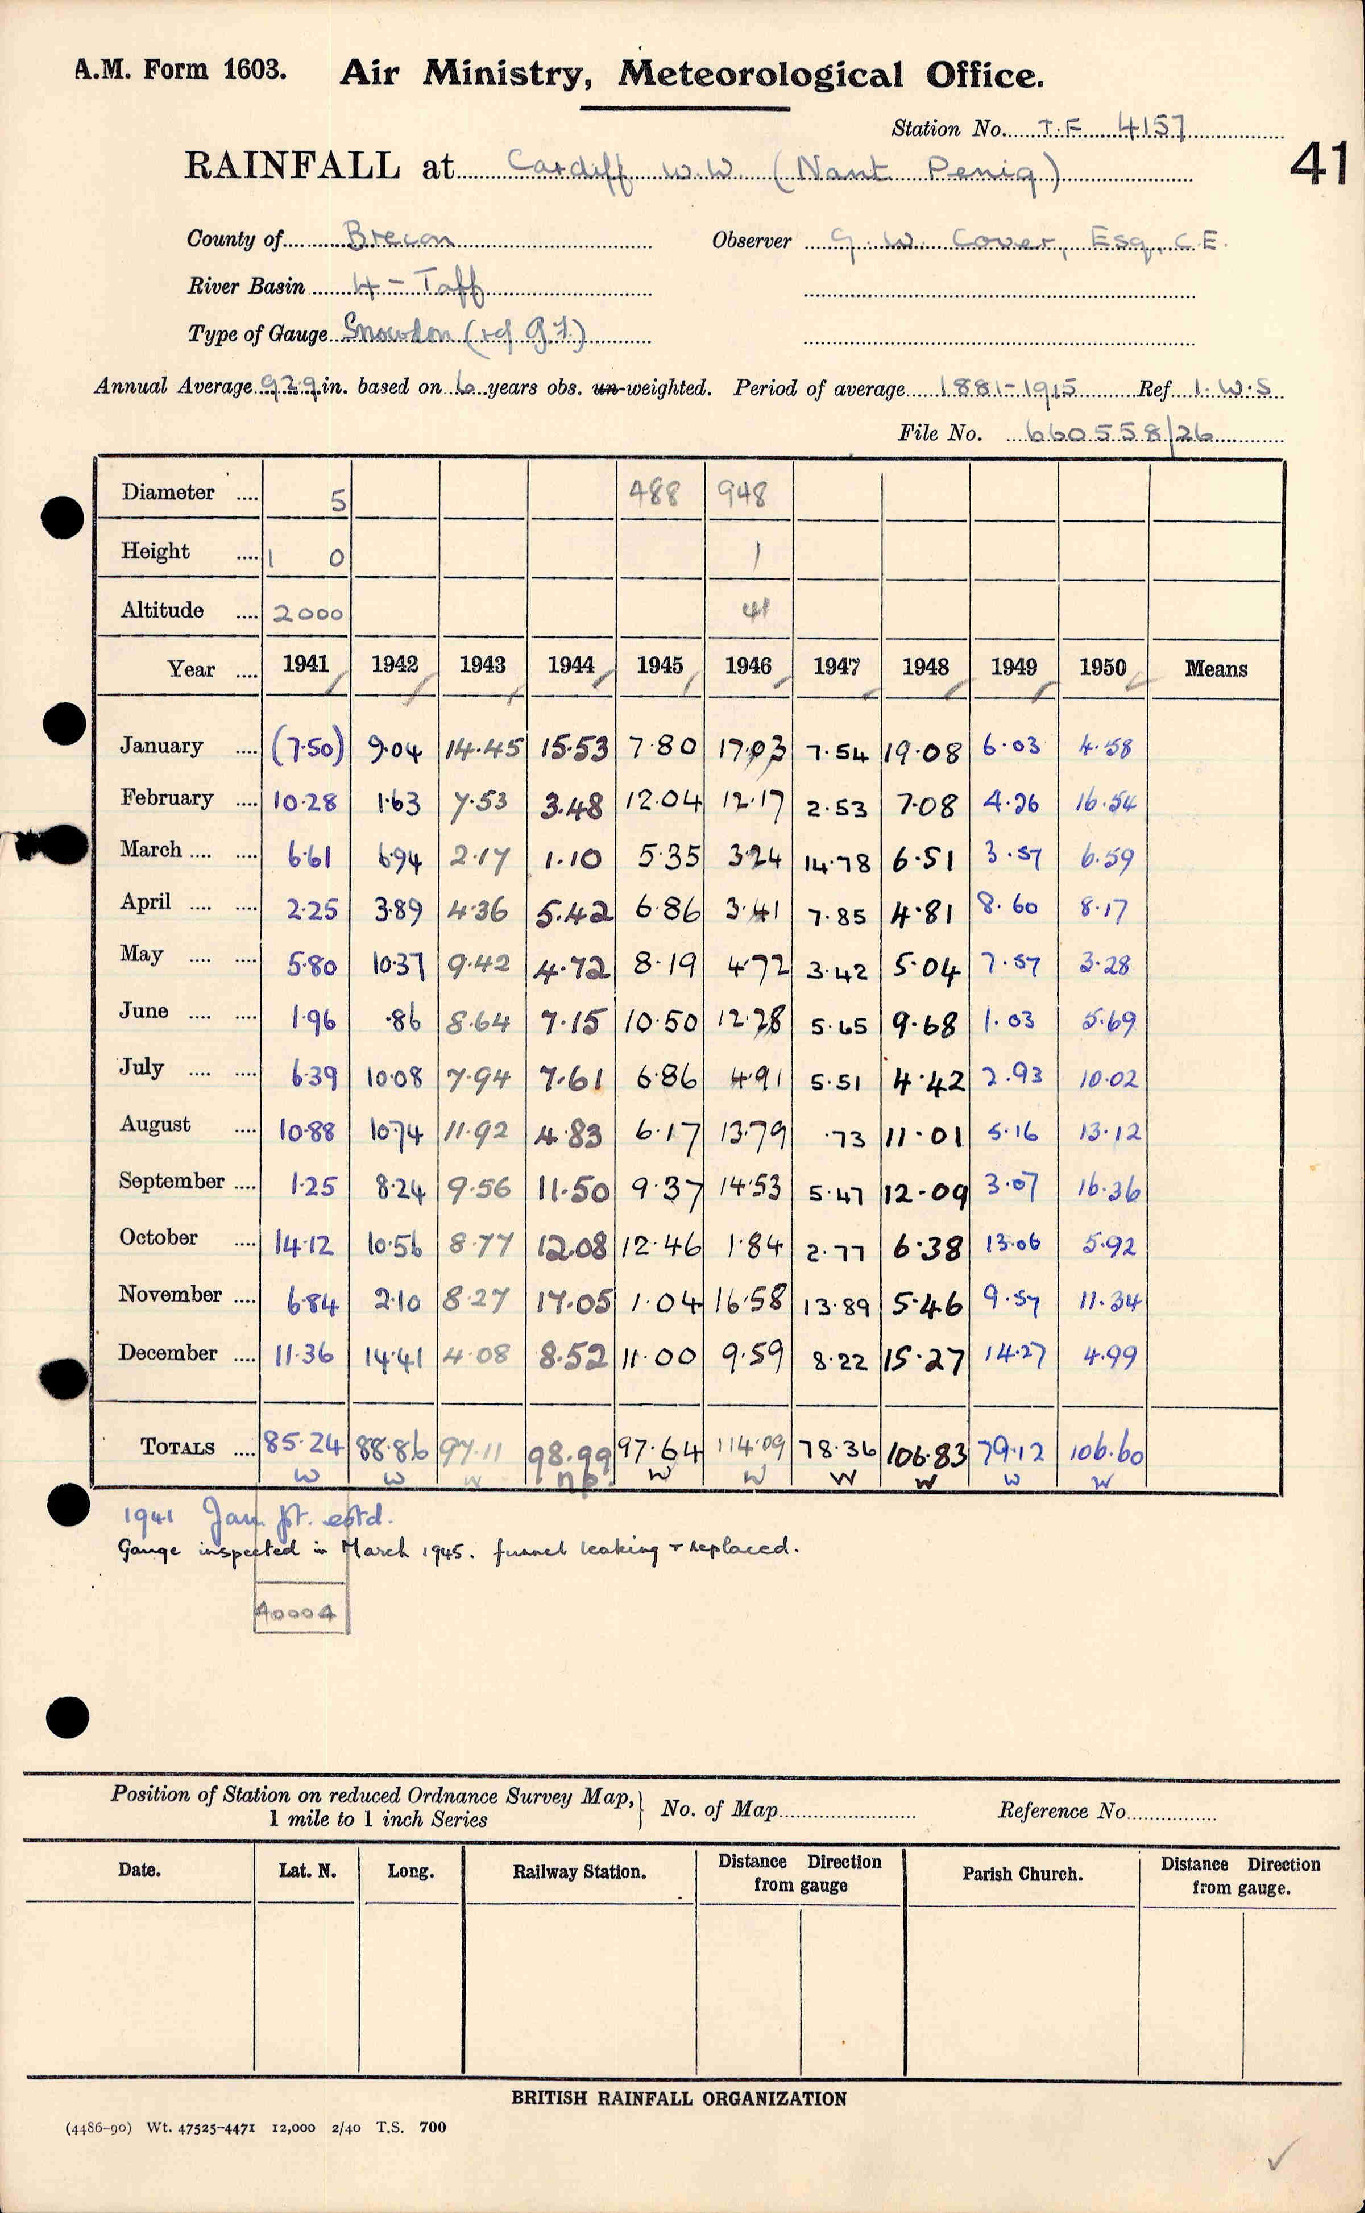 A.M. Form 1603. Air Ministry, Meteorological Office.
Station No. T.F 4157
41
RAINFALL at Cardiff W.W (Nant Penig)
County of Brecon Observer G. W. Cover, Esq., C.E.
River Basin 4 - Taff
Type of Gauge Snowdon
Annual Average 92.9 in. based on 6 years obs. un-weighted. Period of average 1881-1915 Ref I.W.S
File No. 660558/26
Diameter .... 5 488 948
Height .... 1 0 1
Altitude .... 2000 41
Year .... 1941 1942 1943 1944 1945 1946 1947 1948 1949 1950 Means
January .... (7.50) 9.04 14.45 15.53 7.80 17.03 7.54 19.08 6.03 4.58
February .... 10.28 1.63 7.53 3.48 12.04 12.17 2.53 7.08 4.26 16.54
March .... .... 6.61 6.94 2.17 1.10 5.35 3.24 14.78 6.51 3.57 6.59
April .... .... 2.25 3.89 4.36 5.42 6.86 3.41 7.85 4.81 8.60 8.17
May .... .... 5.80 10.37 9.42 4.72 8.19 4.72 3.42 5.04 7.57 3.28
June .... .... 1.96 .86 8.64 7.15 10.50 12.28 5.65 9.68 1.03 5.69
July .... .... 6.39 10.08 7.94 7.61 6.86 4.91 5.51 4.42 2.93 10.02
August .... 10.88 10.74 11.92 4.83 6.17 13.79 .73 11.01 5.16 13.12
September .... 1.25 8.24 9.56 11.50 9.37 14.53 5.47 12.09 3.07 16.36
October .... 14.12 10.56 8.77 12.08 12.46 1.84 2.77 6.38 13.06 5.92
November .... 6.84 2.10 8.27 17.05 1.04 16.58 13.89 5.46 9.57 11.34
December .... 11.36 14.41 4.08 8.52 11.00 9.59 8.22 15.27 14.27 4.99
TOTALS .... 85.24 88.86 97.11 98.99 97.64 114.09 78.36 106.83 79.12 106.60
W W W np. W W W W W W
1941 Jan pt. estd.
Gauge inspected in March 1945. funnel leaking & replaced.
40004
Position of Station on reduced Ordnance Survey Map, 1 mile to 1 inch Series } No. of Map Reference No.
Date. Lat. N. Long. Railway Station. Distance Direction from gauge Parish Church. Distance Direction from gauge.
BRITISH RAINFALL ORGANIZATION
(4486-90) Wt. 47525-4471 12,000 2/40 T.S. 700